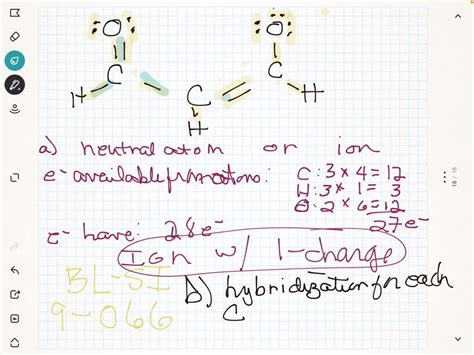 :Ö: :Ö:
C C
H C H
H
a) neutral atom or ion
e⁻ available from atoms: C: 3 x 4 = 12
H: 3 x 1 = 3
O: 2 x 6 = 12
27e⁻
e⁻ have: 28e⁻
Ion w/ 1-charge
BL-SI b) hybridization for each
9-066 C
18 / 18